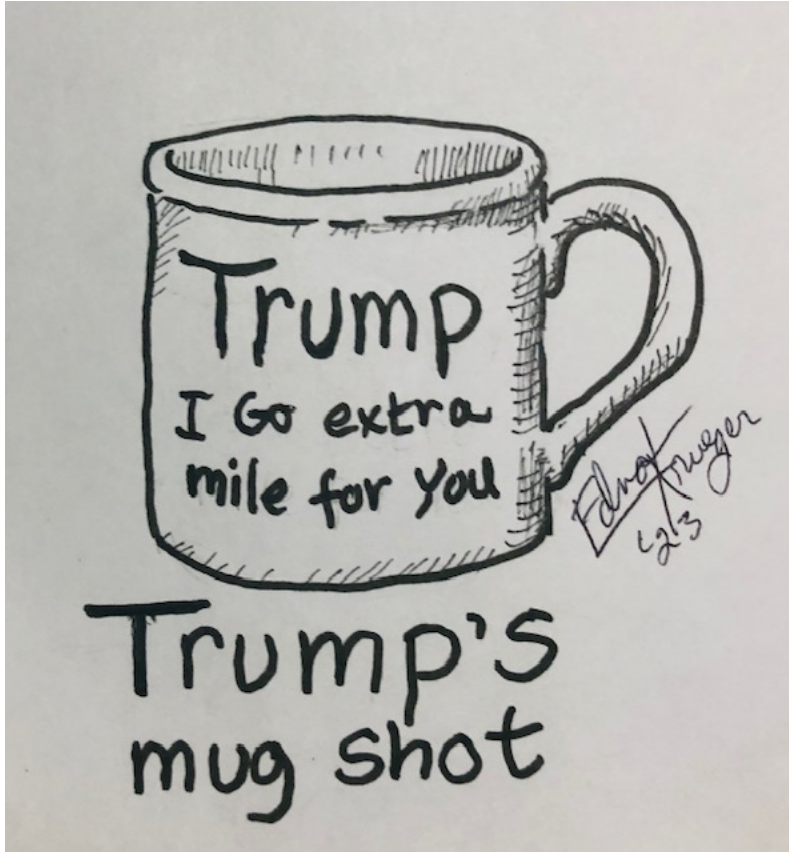 Trump
I Go extra
mile for you
Edna Krueger
'23
Trump's
mug shot